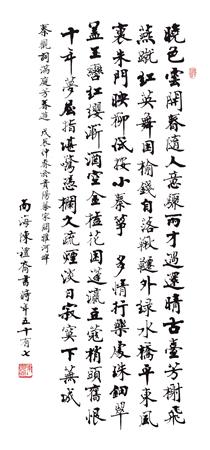 曉色雲開春隨人意驟雨才過還晴古臺芳榭飛
燕蹴紅英舞困榆錢自落鞦韆外綠水橋平東風
裏朱門映柳低按小秦箏 多情行樂處珠鈿翠
蓋玉轡紅纓漸酒空金榼花困蓬瀛豆蔻梢頭舊恨
十年夢屈指堪驚憑欄久疏煙淡日寂寞下蕪城
秦觀詞滿庭芳春遊 戊辰仲春於貴陽 河畔
海陳 齋書時年五十有七